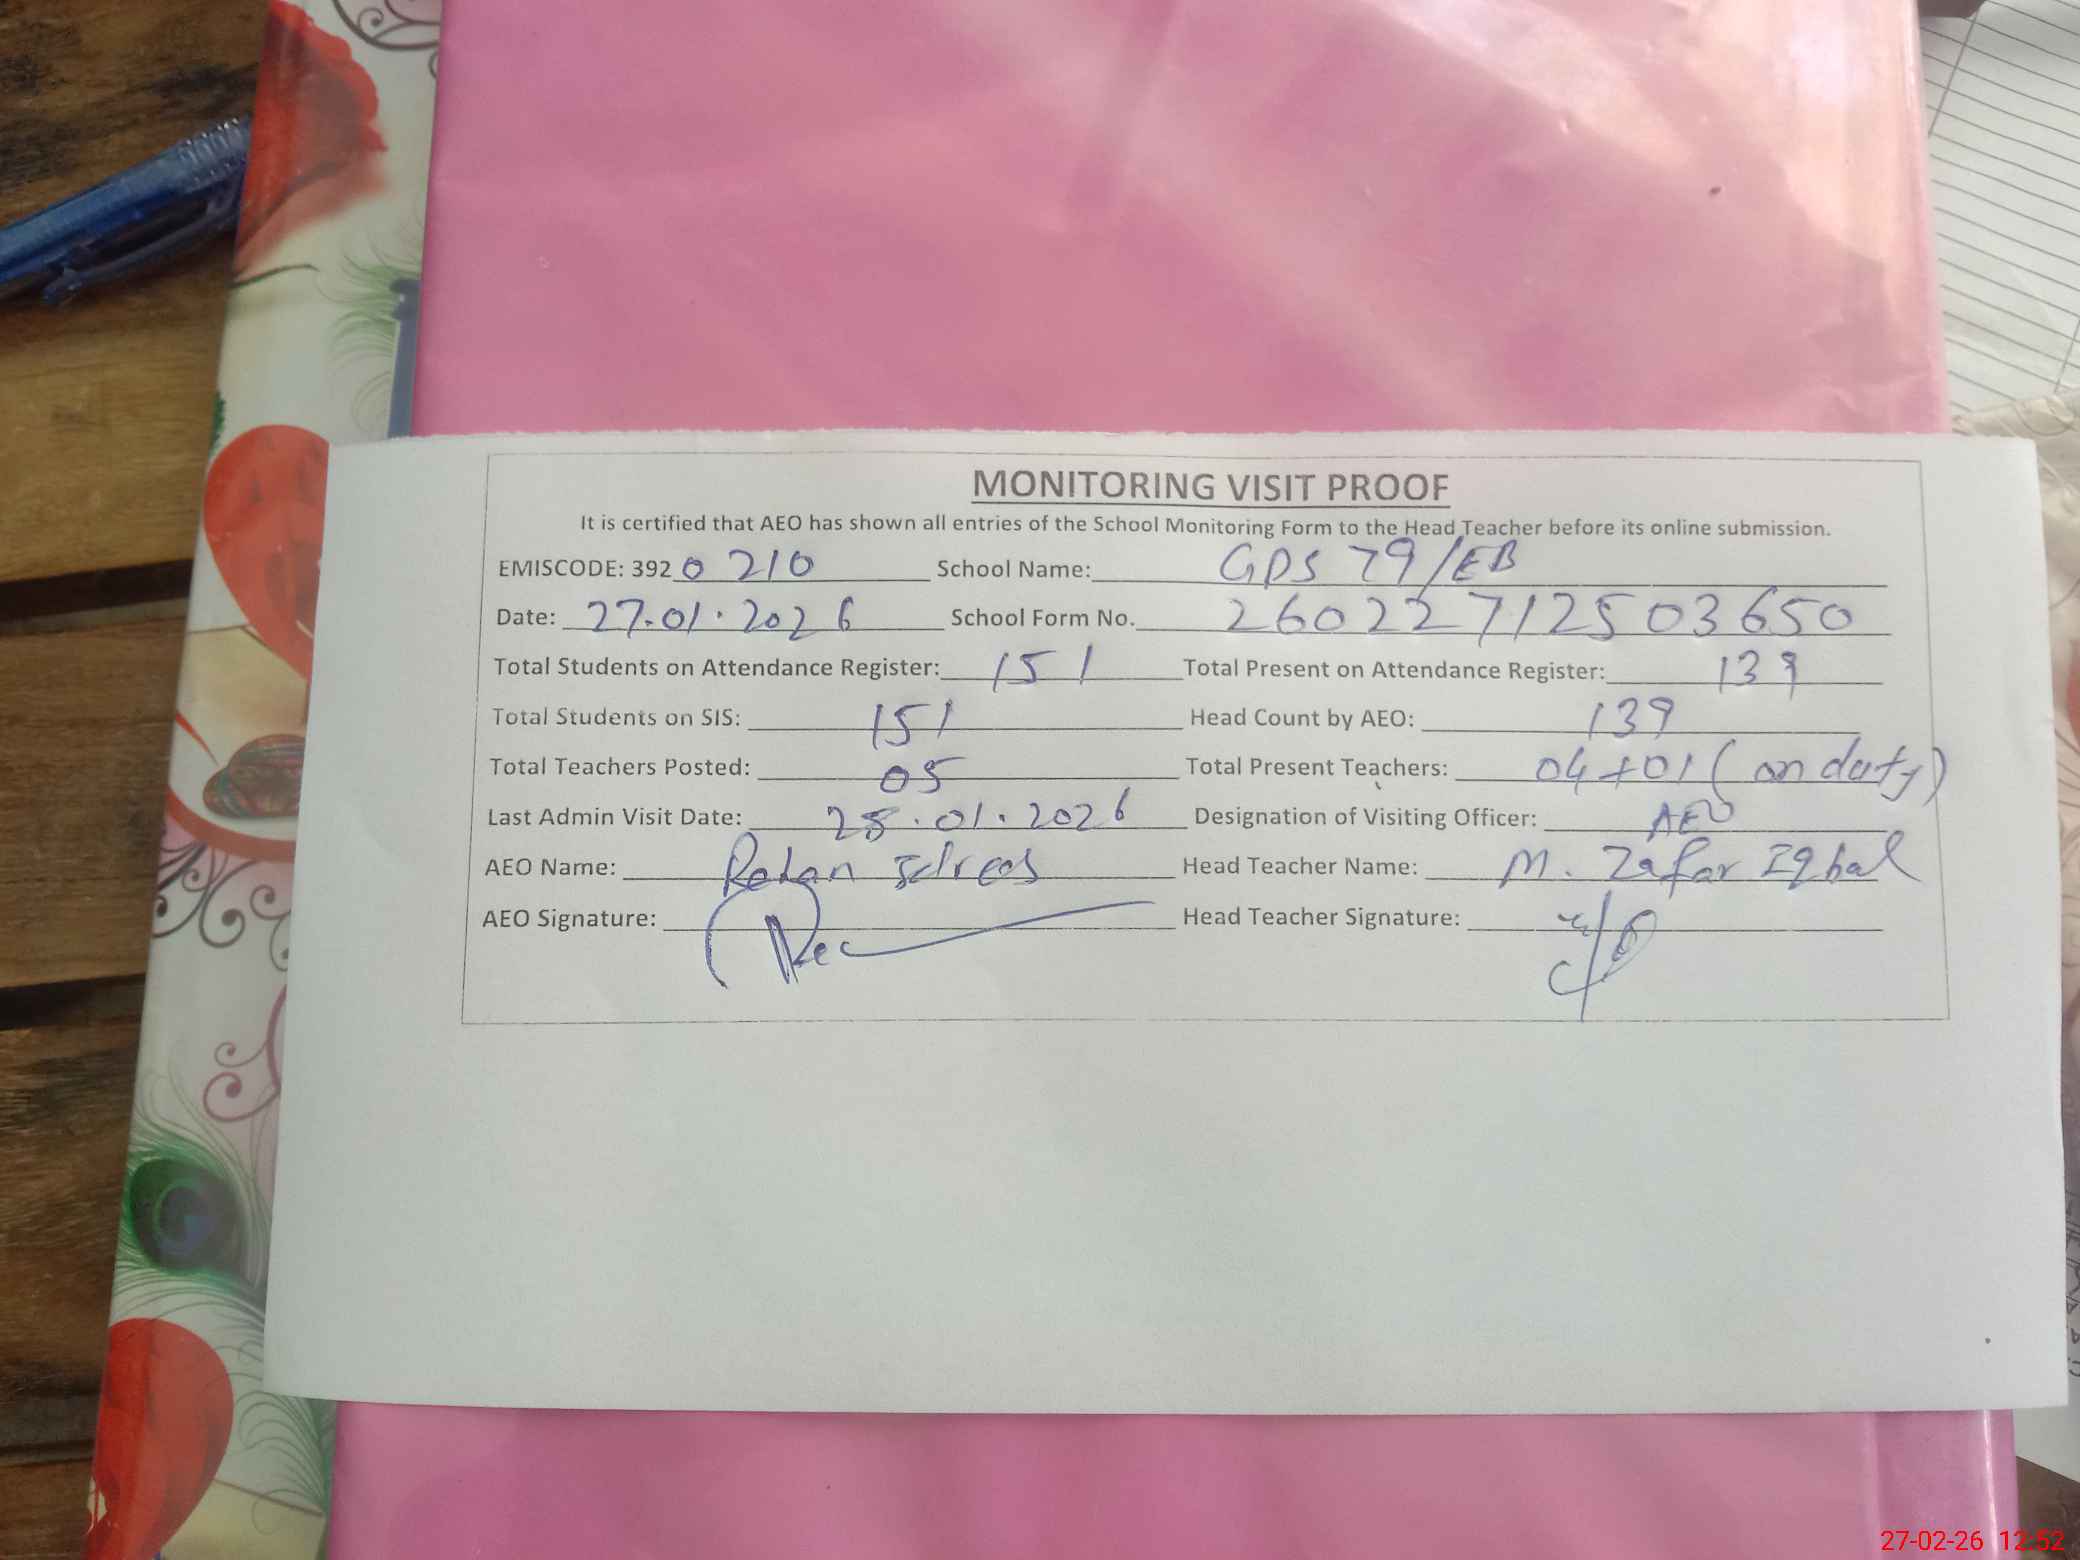 MONITORING VISIT PROOF
It is certified that AEO has shown all entries of the School Monitoring Form to the Head Teacher before its online submission.
EMISCODE: 392 0210 School Name: GPS 79/EB
Date: 27.01.2026 School Form No. 26022712503650
Total Students on Attendance Register: 151 Total Present on Attendance Register: 139
Total Students on SIS: 151 Head Count by AEO: 139
Total Teachers Posted: 05 Total Present Teachers: 04+01 (on duty)
Last Admin Visit Date: 28.01.2026 Designation of Visiting Officer: AEO
AEO Name: Rehan Idrees Head Teacher Name: M. Zafar Iqbal
AEO Signature: Head Teacher Signature:
27-02-26 12:52